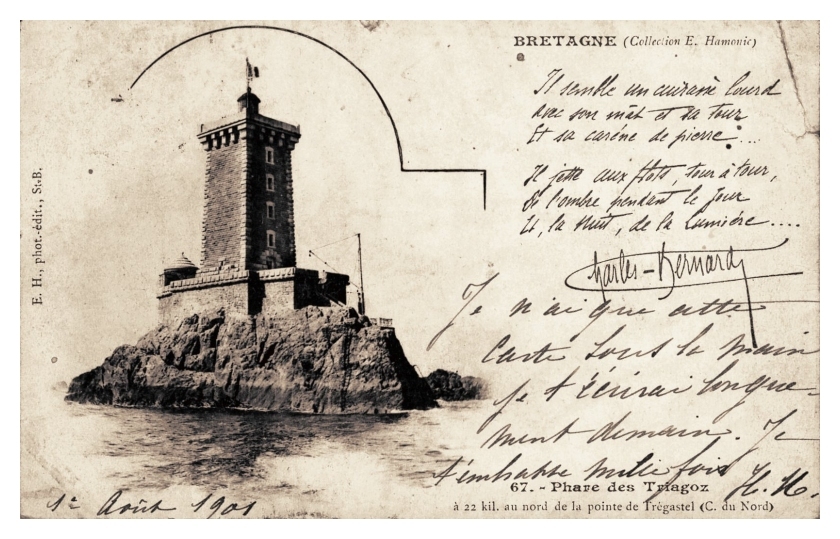 BRETAGNE (Collection E. Hamonic)
Il semble un cuirassé lourd
Avec son mât et sa tour
Et sa carène de pierre....
Il jette aux flots, tour à tour,
De l'ombre pendant le Jour
Et, la Nuit, de la Lumière....
Charles-Bernard
Je n'ai que cette
carte sous la main
je t'écrirai longue-
ment demain. Je
t'embrasse mille fois H. H.
67. - Phare des Triagoz
à 22 kil. au nord de la pointe de Trégastel (C. du Nord)
1er Août 1901
E. H., phot.-édit., St-B.